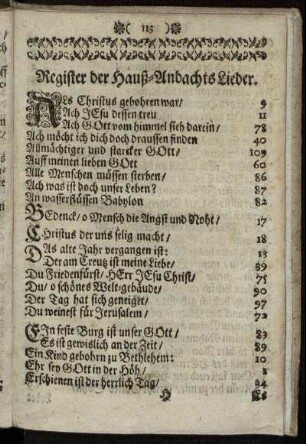 ( 113 )
Register der Hauß-Andachts Lieder.
Als Christus gebohren war/ 9
Ach JEsu dessen treu 11
Ach GOtt vom himmel sieh darein/ 78
Ach möcht ich dich doch draussen finden 40
Allmächtiger und starcker GOtt/ 109
Auff meinen lieben GOtt 60
Alle Menschen müssen sterben/ 86
Ach was ist doch unser Leben? 87
An wasserflüssen Babylon 82
Bedenck/ o Mensch die Angst und Noht/ 17
Christus der uns selig macht/ 18
Das alte Jahr vergangen ist: 13
Der am Creutz ist meine Liebe/ 89
Du Friedenfürst/ HErr JEsu Christ/ 75
Du/ o schönes Welt-gebäude/ 90
Der Tag hat sich geneiget/ 97
Du weinest für Jerusalem/ 72
Ein feste Burg ist unser GOtt/ 83
Es ist gewislich an der Zeit/ 89
Ein Kind gebohrn zu Bethlehem: 10
Ehr sey GOtt in der Höh/ 1
Erschienen ist der herrlich Tag/ 94
H Es